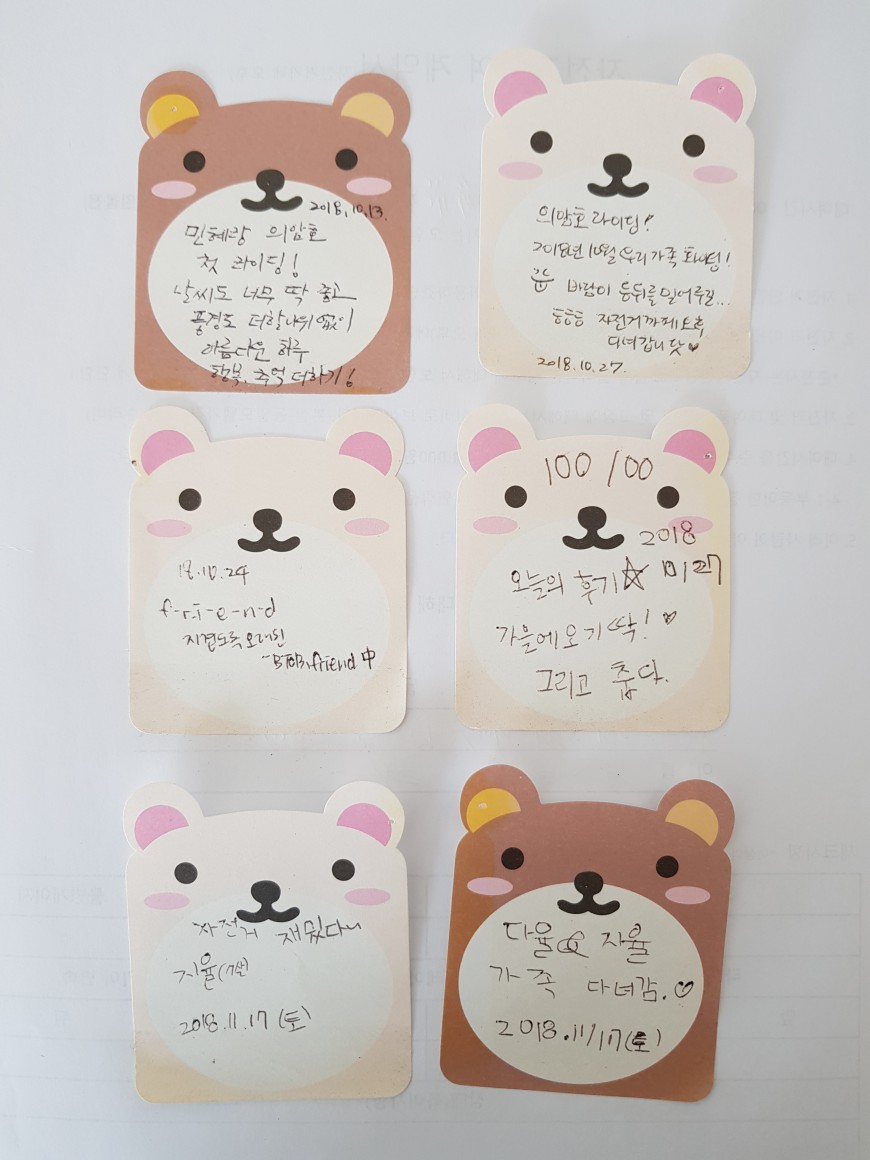 2018.10.13.
민혜랑 의암호
첫 라이딩!
날씨도 너무 딱 좋고
풍경도 더할나위 없이
아름다운 하루
행복, 추억 더하기!
의암호 라이딩!
2018년 10월 우리가족 화이팅!
바람이 등뒤를 밀어주길...
통통통 자전거까페 또
다녀갑니닷♥
2018.10.27.
18.10.24
f-r-i-e-n-d
지겹도록 오래된
-BTOB, friend 中
100/00
2018
오늘의 후기☆ 10/27
가을에 오기 딱! ♡
그리고 춥다.
자전거 재밌다~
지율(7살)
2018.11.17 (토)
다율 & 지율
가족 다녀감.♡
2018.11/17(토)